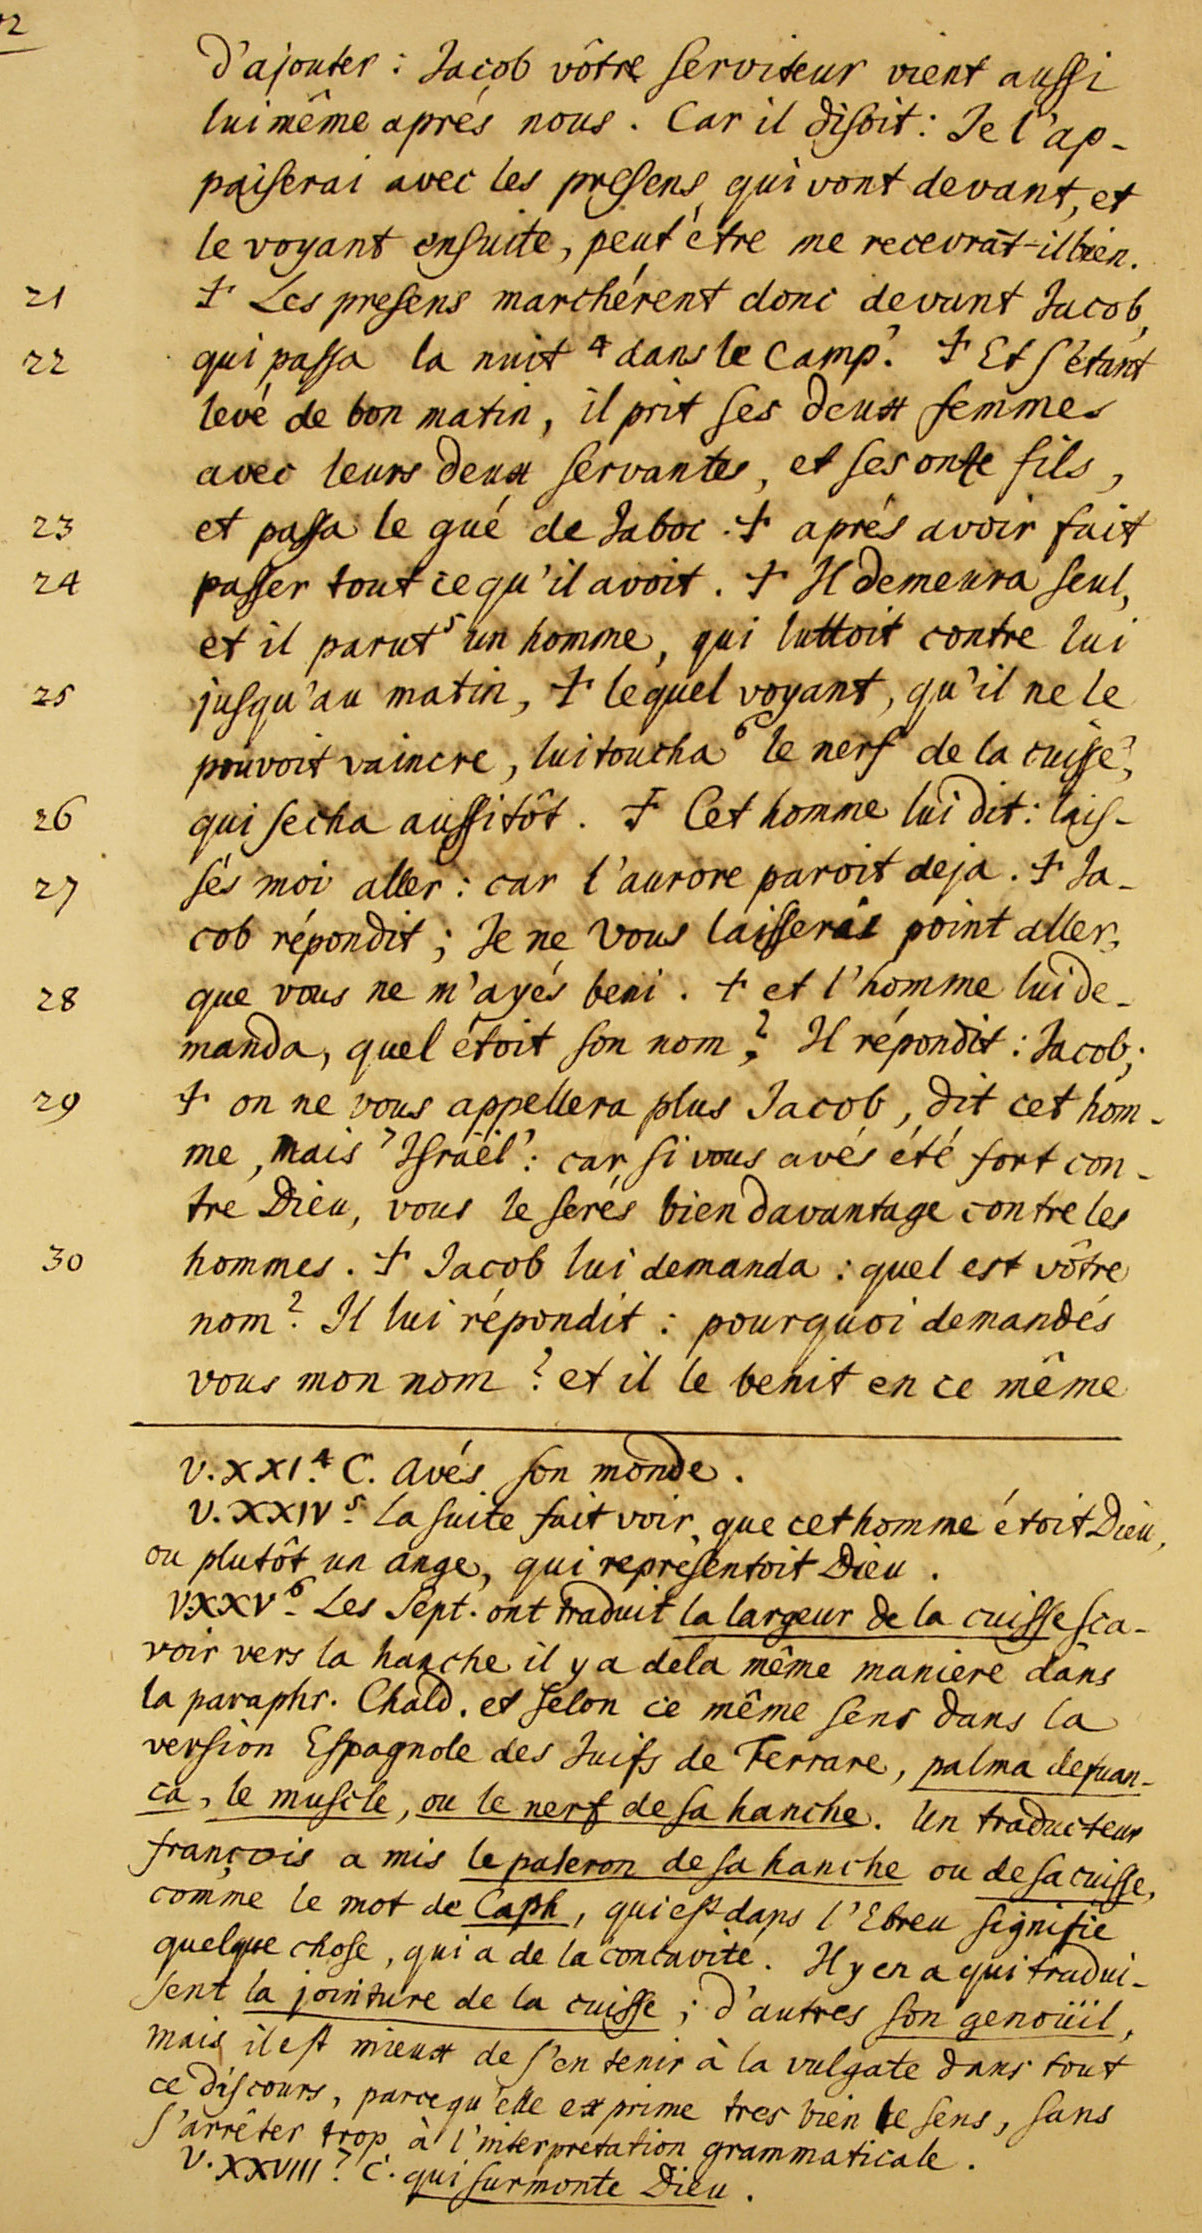 d'ajouter : Jacob vôtre serviteur vient aussi
lui même aprés nous . Car il disoit : Je l'ap-
paiserai avec les presens qui vont devant, et
le voyant ensuite, peut être me recevrat-il bien.
21 ‡ Les presens marchérent donc devant Jacob,
22 qui passa la nuit ⁴ dans le Camp. ‡ Et s'étant
levé de bon matin, il prit ses deux femmes
avec leurs deux servantes, et ses onze fils,
23 et passa le gué de Jaboc . ‡ aprés avoir fait
24 passer tout ce qu'il avoit . ‡ Il demeura seul,
et il parut ⁵ un homme, qui luttoit contre lui
25 jusqu'au matin, ‡ lequel voyant, qu'il ne le
pouvoit vaincre, lui toucha ⁶ le nerf de la cuisse,
26 qui secha aussitôt . ‡ Cet homme lui dit : lais-
27 sés moi aller : car l'aurore paroit deja . ‡ Ja-
cob répondit ; Je ne vous laisserai point aller,
28 que vous ne m'ayés beni . ‡ et l'homme lui de-
manda, quel étoit son nom ? Il répondit : Jacob ;
29 ‡ on ne vous appellera plus Jacob, dit cet hom-
me, mais ⁷ Israël : car si vous avés été fort con-
tre Dieu, vous le serés bien davantage contre les
30 hommes . ‡ Jacob lui demanda : quel est vôtre
nom ? Il lui répondit : pourquoi demandés
vous mon nom ? et il le benit en ce même
V. XXI. ⁴ C. Avés son monde .
V. XXIV ⁵. La suite fait voir, que cet homme étoit Dieu,
ou plutôt un ange, qui représentoit Dieu .
V. XXV ⁶. Les Sept. ont traduit la largeur de la cuisse sca-
voir vers la hanche il y a de la même maniere dans
la paraphr. Chald. et selon ce même sens dans la
version Espagnole des Juifs de Ferrare, palma de fuan-
ca, le muscle, ou le nerf de sa hanche . Un traducteur
françois a mis le paleron de sa hanche ou de sa cuisse,
comme le mot de Caph, qui est dans l'Ebreu signifie
quelque chose, qui a de la concavité . Il y en a qui tradui-
sent la jointure de la cuisse ; d'autres son genoüil,
mais il est mieux de s'en tenir à la vulgate dans tout
ce discours, parcequ'elle exprime tres bien le sens, sans
s'arrêter trop à l'interpretation grammaticale .
V. XXVIII ⁷. C. qui surmonte Dieu .